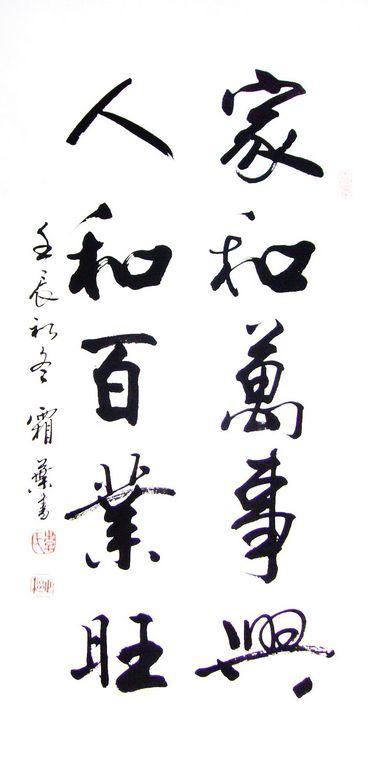 家和萬事興
人和百業旺
壬辰初冬 霜葉書